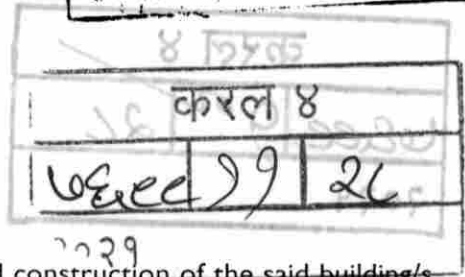 करल ४
७६९९ ११ २८
२०२१
construction of the said building/s